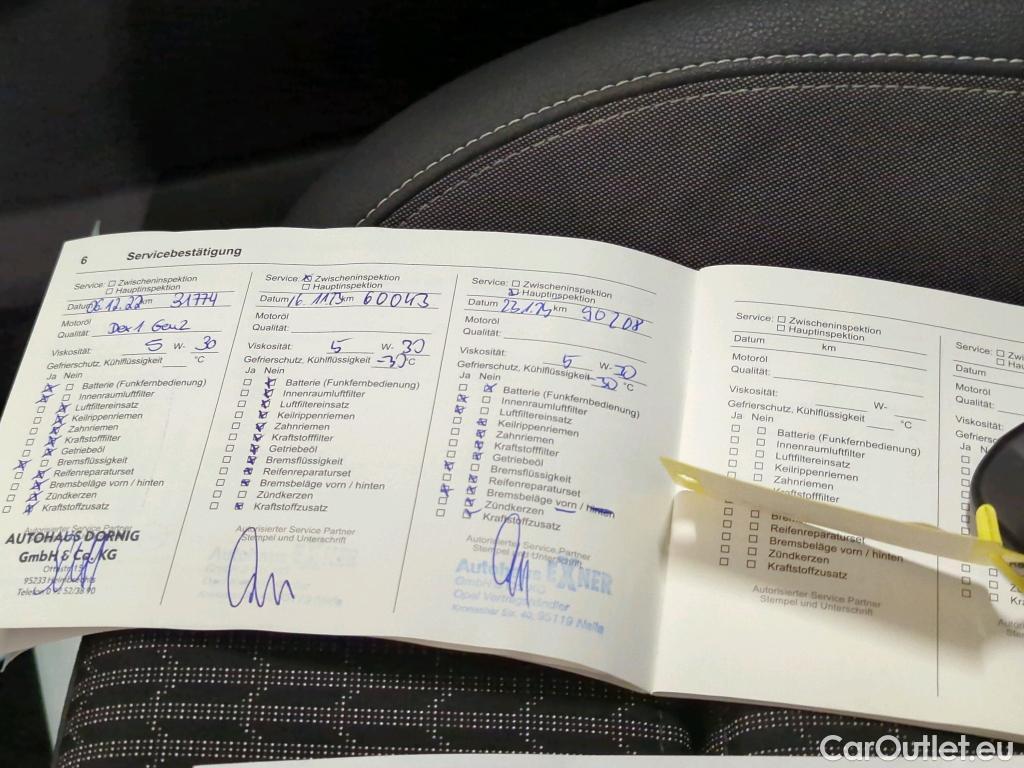 6 Servicebestätigung
Service: Zwischeninspektion
Hauptinspektion
Datum 06.12.22 km 31774
Motoröl
Qualität: Dex 1 Gen2
Viskosität: 5 W- 30
Gefrierschutz, Kühlflüssigkeit °C
Ja Nein
Batterie (Funkfernbedienung)
Innenraumluftfilter
Luftfiltereinsatz
Keilrippenriemen
Zahnriemen
Kraftstofffilter
Getriebeöl
Bremsflüssigkeit
Reifenreparaturset
Bremsbeläge vorn / hinten
Zündkerzen
Kraftstoffzusatz
Autorisierter Service Partner
AUTOHAUS DORNIG
GmbH & Co. KG
95233 Helmbrechts
Service: Zwischeninspektion
Hauptinspektion
Datum 16. 11 km 60043
Motoröl
Qualität:
Viskosität: 5 W- 30
Gefrierschutz, Kühlflüssigkeit -30 °C
Ja Nein
Batterie (Funkfernbedienung)
Innenraumluftfilter
Luftfiltereinsatz
Keilrippenriemen
Zahnriemen
Kraftstofffilter
Getriebeöl
Bremsflüssigkeit
Reifenreparaturset
Bremsbeläge vorn / hinten
Zündkerzen
Kraftstoffzusatz
Autorisierter Service Partner
Stempel und Unterschrift
Service: Zwischeninspektion
Hauptinspektion
Datum km 90208
Motoröl
Qualität:
Viskosität: 5 W- 30
Gefrierschutz, Kühlflüssigkeit -30 °C
Ja Nein
Batterie (Funkfernbedienung)
Innenraumluftfilter
Luftfiltereinsatz
Keilrippenriemen
Zahnriemen
Kraftstofffilter
Getriebeöl
Bremsflüssigkeit
Reifenreparaturset
Bremsbeläge vorn / hinten
Zündkerzen
Kraftstoffzusatz
Autorisierter Service Partner
Stempel und Unterschrift
Autohaus EXNER
GmbH
Opel Vertragshändler
Kronacher Str. 40, 95119 Naila
Service: Zwischeninspektion
Hauptinspektion
Datum km
Motoröl
Qualität:
Viskosität: W-
Gefrierschutz, Kühlflüssigkeit °C
Ja Nein
Batterie (Funkfernbedienung)
Innenraumluftfilter
Luftfiltereinsatz
Keilrippenriemen
Zahnriemen
Kraftstofffilter
Reifenreparaturset
Bremsbeläge vorn / hinten
Zündkerzen
Kraftstoffzusatz
Autorisierter Service Partner
Stempel und Unterschrift
Service:
Datum
Motoröl
Qualität:
Viskosität:
Ja
CarOutlet.eu